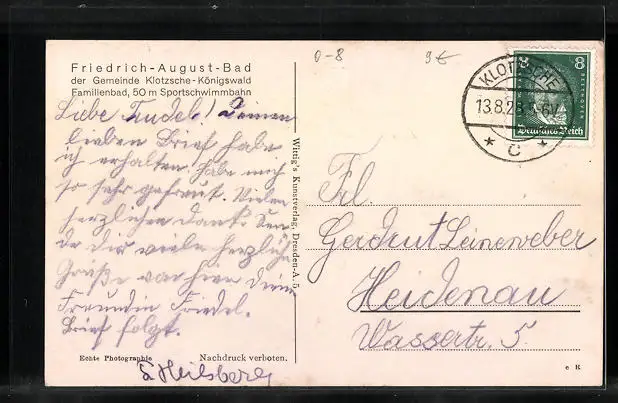 Friedrich-August-Bad
der Gemeinde Klotzsche-Königswald
Familienbad, 50 m Sportschwimmbahn
Liebe Trudel! Deinen
lieben Brief habe
ich erhalten. habe mich
so sehr gefreut. Vielen
herzlichen Dank. Sen
de dir viele herzliche
Grüße von hier deine
Freundin Friedel.
Brief folgt.
Echte Photographie
Nachdruck verboten.
S. Heilsberg
Wittig's Kunstverlag, Dresden-A. 5
0-8
9€
KLOTZSCHE
13.8.28
* c *
8
8
BEETHOVEN
Deutsches Reich
Frl.
Gerdrut Leineweber
Heidenau
Wasserstr. 5.
c R